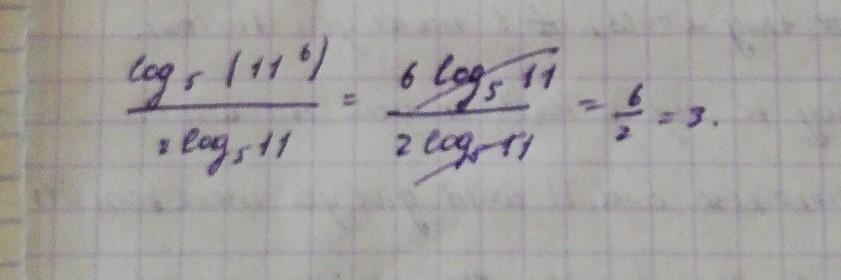 log₅(11⁶) / 2 log₅11 = 6 log₅11 / 2 log₅11 = 6/2 = 3.